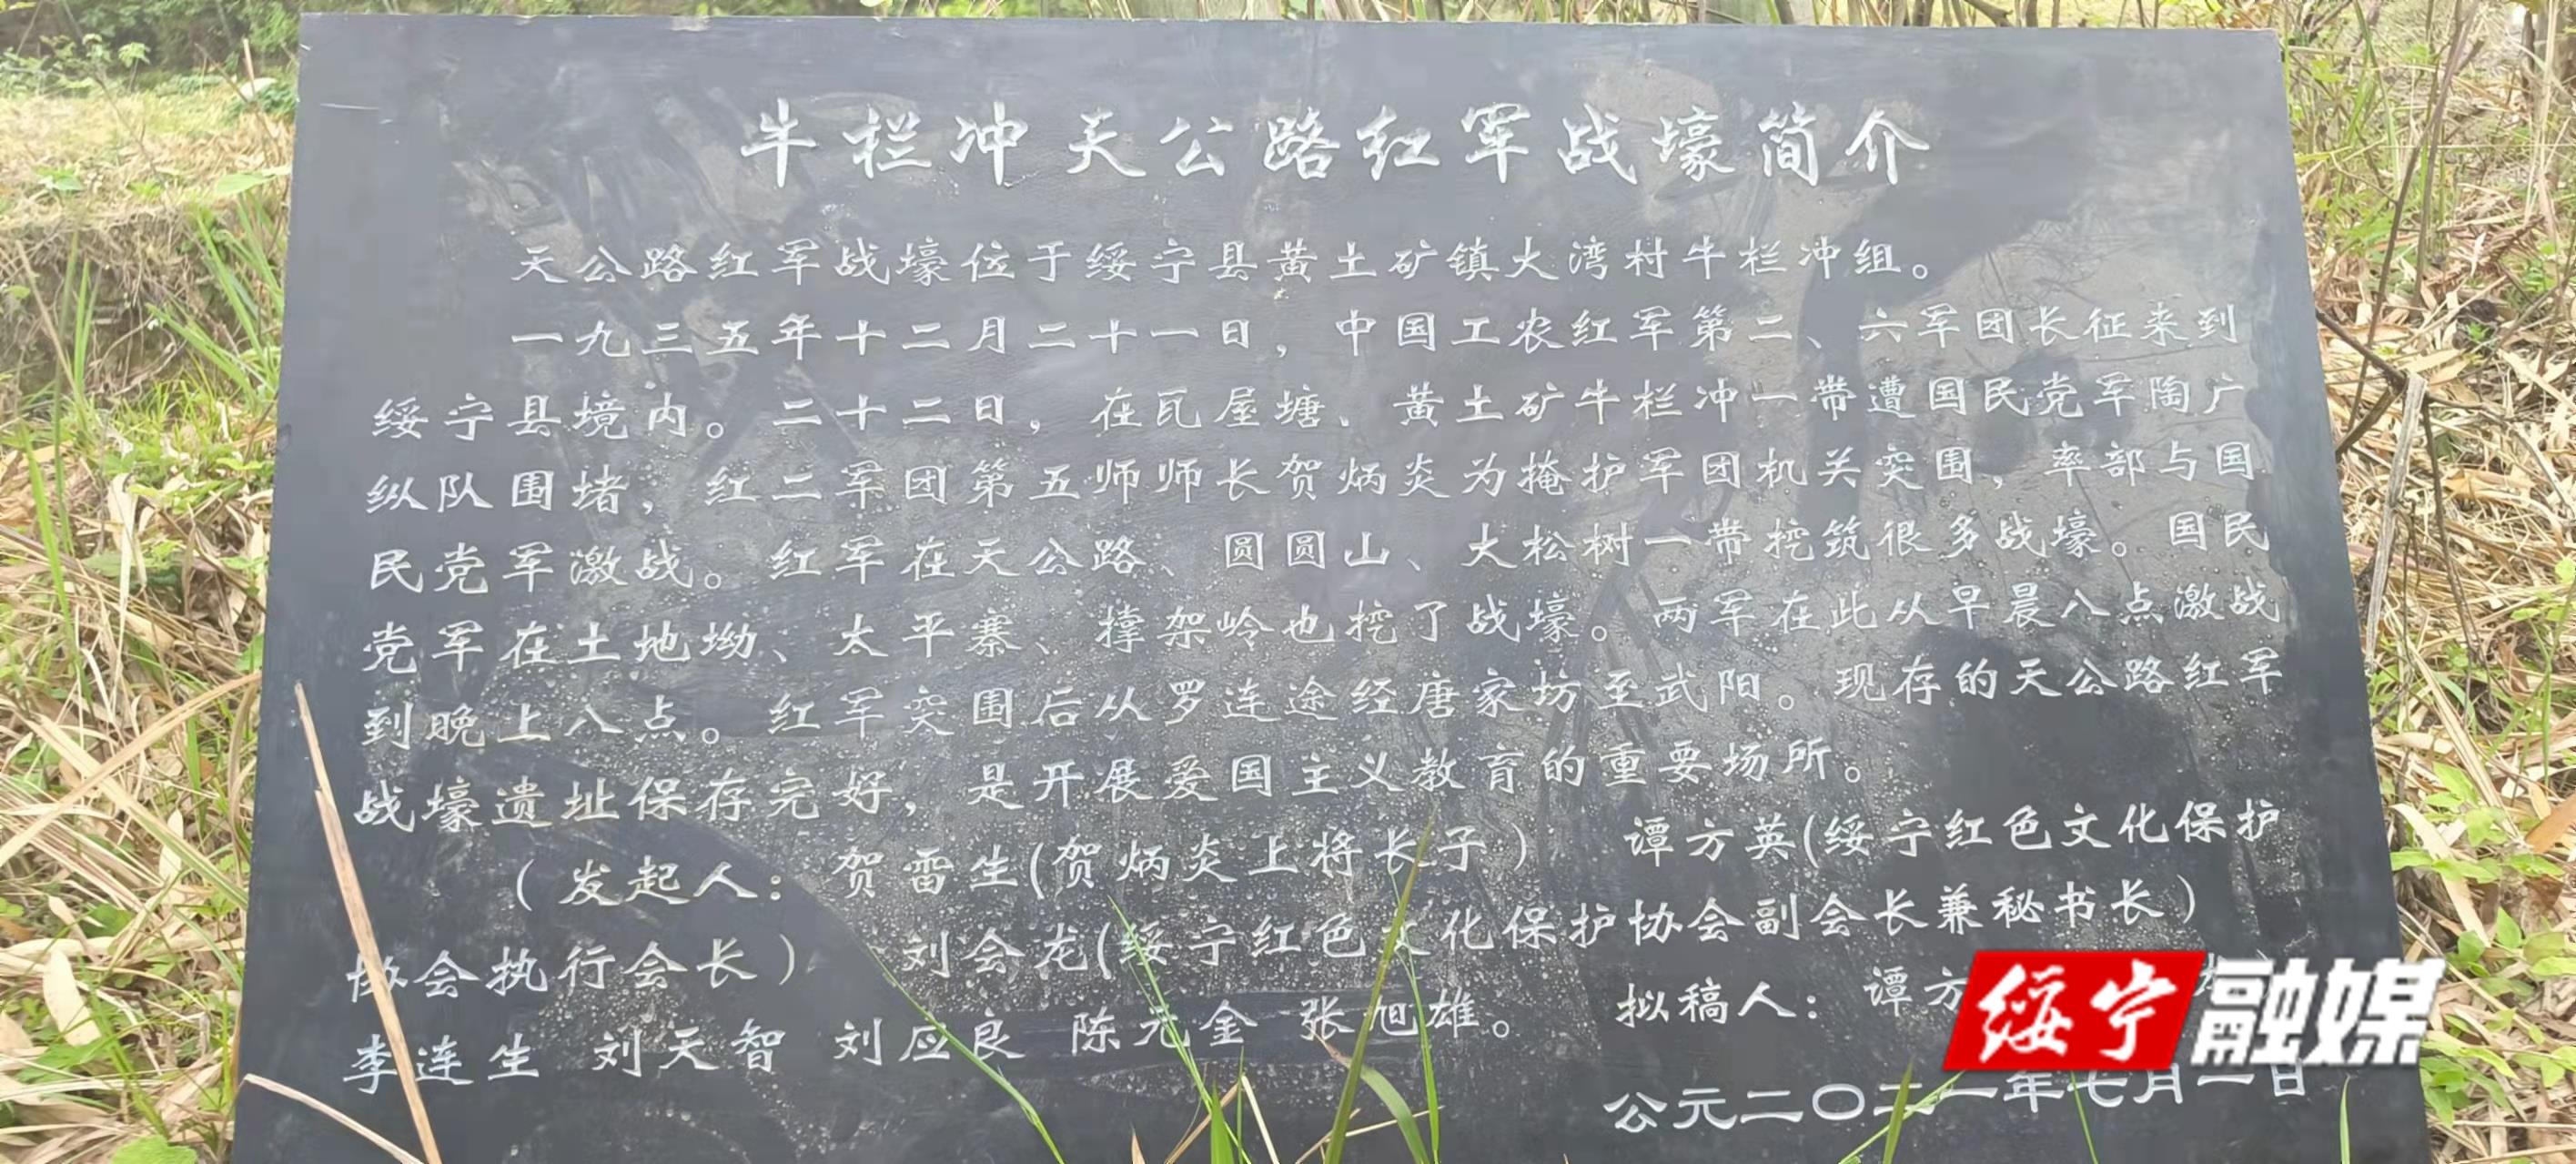 牛栏冲天公路红军战壕简介
天公路红军战壕位于绥宁县黄土矿镇大湾村牛栏冲组。
一九三五年十二月二十一日，中国工农红军第二、六军团长征来到
绥宁县境内。二十二日，在瓦屋塘、黄土矿牛栏冲一带遭国民党军陶广
纵队围堵，红二军团第五师师长贺炳炎为掩护军团机关突围，率部与国
民党军激战。红军在天公路、圆圆山、大松树一带挖筑很多战壕。国民
党军在土地坳、太平寨、撑架岭也挖了战壕。两军在此从早晨八点激战
到晚上八点。红军突围后从罗连途经唐家坊至武阳。现存的天公路红军
战壕遗址保存完好，是开展爱国主义教育的重要场所。
（发起人：贺雷生(贺炳炎上将长子） 谭方英(绥宁红色文化保护
协会执行会长） 刘会龙(绥宁红色文化保护协会副会长兼秘书长）
李连生 刘天智 刘应良 陈元金 张旭雄。 拟稿人：谭方
公元二〇二一年七月一日
绥宁融媒